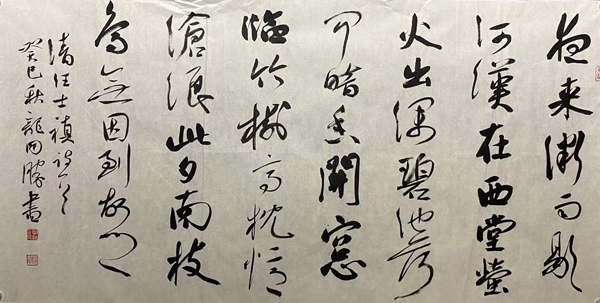 夜来微雨歇
河漢在西堂螢
火出深碧池荷
聞暗香開窓
臨竹樹高枕憶
滄浪此夕南枝
鳥無因到故鄉
清汪士禎詩一首
癸巳秋龍田勝書